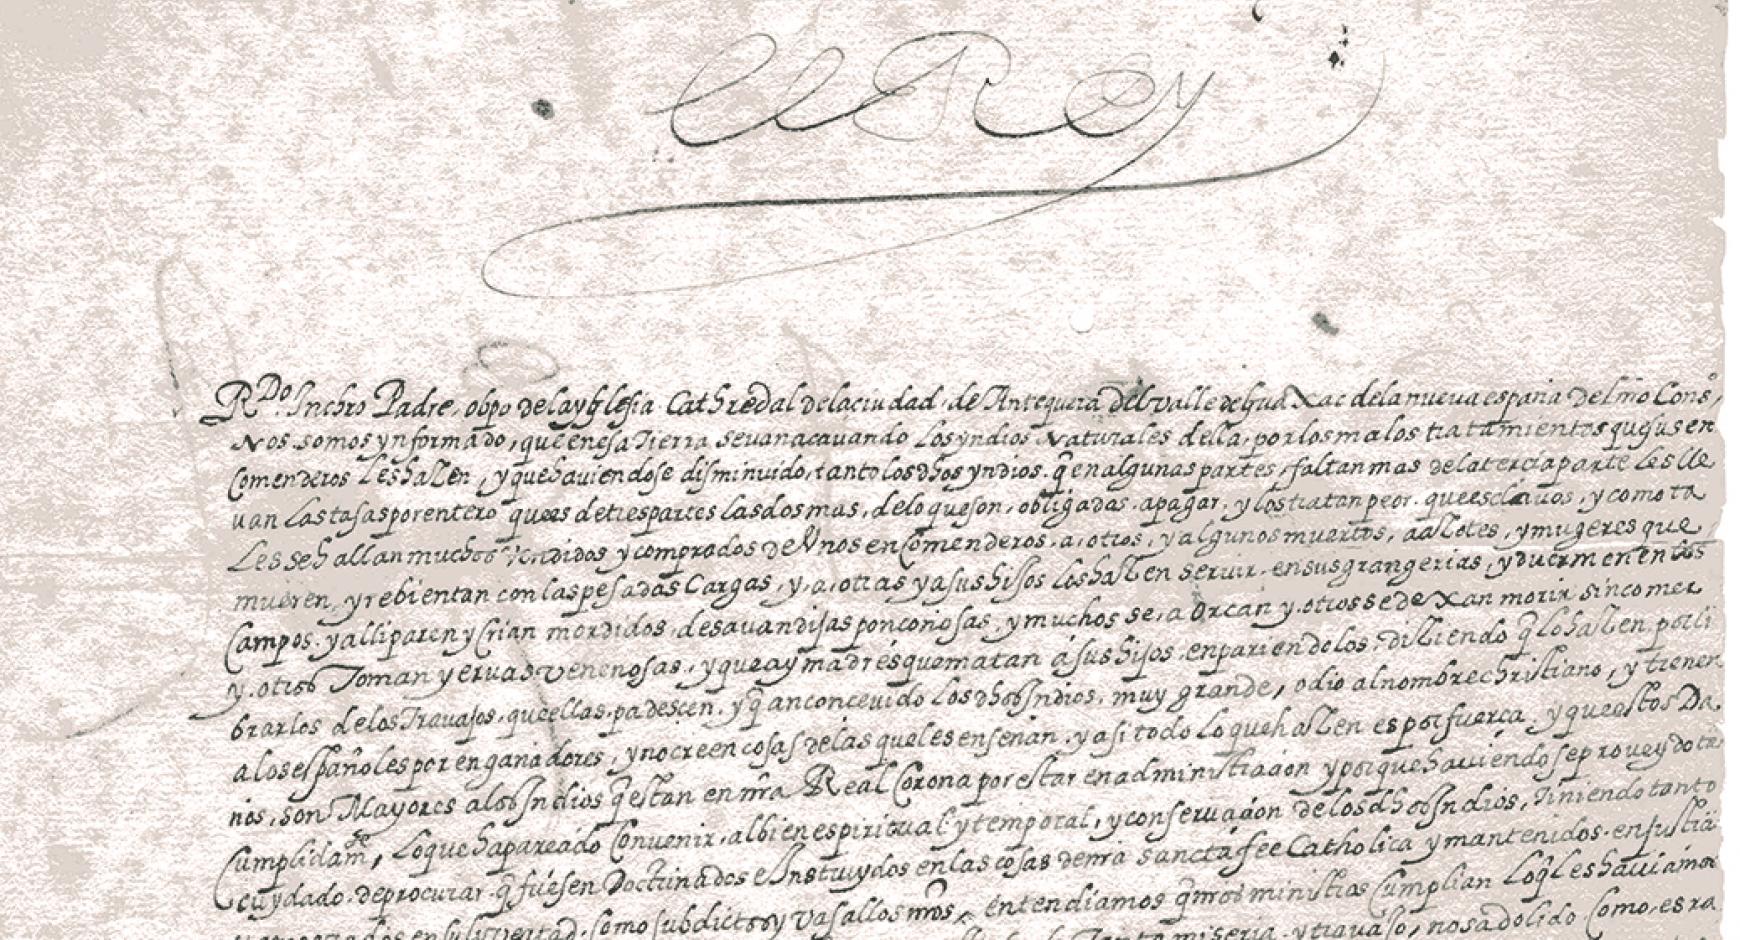 el Rey
R.do Inchro Padre, obpo de la yglesia Cathredal de la ciudad de Antequera del valle de guaxac de la nueva españa del nro Cons.
Nos somos ynformado, que en esa Tierra se van acavando los yndios naturales della, por los malos tratamientos que sus en
Comenderos les hazen, y que haviendose disminuido, tanto los dhos yndios. q en algunas partes, faltan mas de la tercia parte les lle
van las tasas por entero que es de tres partes las dos mas, de lo que son, obligados, a pagar, y los tratan peor. que esclavos, y como ta
les se hallan muchos vendidos y comprados de Unos enComenderos, a, otros, y algunos muertos, a açotes, y mugeres que
mueren, y rebientan con las pesadas Cargas, y, a, otras y a sus hijos los hazen servir. en sus grangerias, y duermen en los
Campos. y alli paren y Crian mordidos, de savandijas ponçoñosas, y muchos se, a orcan y. otros se dexan morir sin comer
y. otros Toman yervas venenosas, y que ay madres que matan á sus hijos. en pariendolos: diziendo q lo hazen. por li
brarlos de los Travajos, que ellas, padescen. y q an concevido los dhos Indios, muy grande, odio al nombre christiano, y tienen
a los españoles por engañadores, y no creen cosas de las que les enseñan, y asi todo lo que hazen es por fuerça, y que estos Da
ños, son Mayores a los Indios q estan en nra Real Corona por estar en administraçion y porque haviendose proveydo tan
Cumplidamte, lo que ha pareçido Convenir, al bien espiritual y temporal, y conservaçion de los dhos Indios, y tiniendo tanto
cuydado. de procurar. q fuesen Doctrinados e Instruydos en las cosas de nra sancta fee Catholica y mantenidos. en justia
en su livertad. Como subdictos y vasallos nros, entendiamos q nros ministros Cumplian lo q les haviamos
Tanta miseria y travajo, nos a dolido Como, es ra